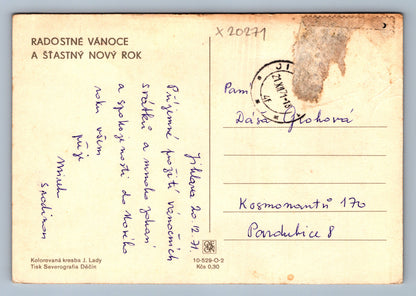 RADOSTNÉ VÁNOCE
A ŠŤASTNÝ NOVÝ ROK
x 20271
Jihlava 20.12.71.
Příjemné prožití vánočních
svátků a mnoho zdraví
a spokojenosti do Nového
roku všem
přeje
Mirek
s rodinou
JI
21.XII.71-18
Paní
Dáša Grohová
Kosmonautů 170
Pardubice 8
Kolorovaná kresba J. Lady
Tisk Severografia Děčín
10-529-O-2
Kčs 0,30